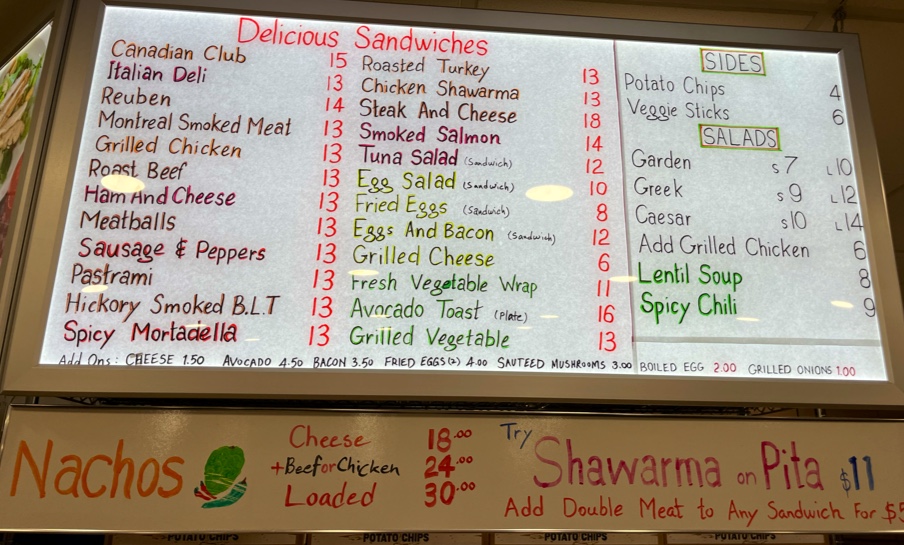 Delicious Sandwiches
Canadian Club 15
Italian Deli 13
Reuben 14
Montreal Smoked Meat 13
Grilled Chicken 13
Roast Beef 13
Ham And Cheese 13
Meatballs 13
Sausage & Peppers 13
Pastrami 13
Hickory Smoked B.L.T 13
Spicy Mortadella 13
Roasted Turkey 13
Chicken Shawarma 13
Steak And Cheese 18
Smoked Salmon 14
Tuna Salad (Sandwich) 12
Egg Salad (Sandwich) 10
Fried Eggs (Sandwich) 8
Eggs And Bacon (Sandwich) 12
Grilled Cheese 6
Fresh Vegetable Wrap 11
Avocado Toast (Plate) 16
Grilled Vegetable 13
SIDES
Potato Chips 4
Veggie Sticks 6
SALADS
Garden S 7 L 10
Greek S 9 L 12
Caesar S 10 L 14
Add Grilled Chicken 6
Lentil Soup 8
Spicy Chili 9
Add Ons: CHEESE 1.50 AVOCADO 4.50 BACON 3.50 FRIED EGGS(2) 4.00 SAUTEED MUSHROOMS 3.00 BOILED EGG 2.00 GRILLED ONIONS 1.00
Nachos
Cheese 18.00
+Beef or Chicken 24.00
Loaded 30.00
Try Shawarma on Pita $11
Add Double Meat to Any Sandwich For $5
POTATO CHIPS POTATO CHIPS POTATO CHIPS POTATO CHIPS